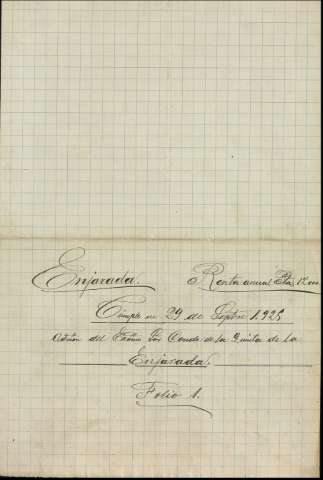 Enjarada. Renta anual Ptas
Cumple en 29 de Septbre 1.925
del Excmo Sor Conde de la Quinta de la
Enjarada.
Folio 1.